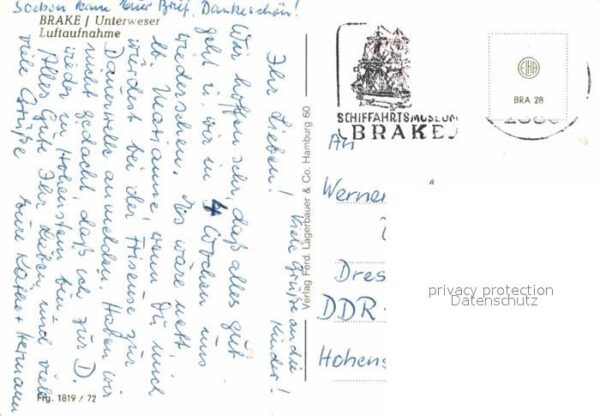 Soeben kam Euer Brief, Dankeschön!
BRAKE / Unterweser
Luftaufnahme
Ihr Lieben!
Wir hoffen sehr, daß alles gut
geht u. wir in 4 Wochen uns
wiedersehen. Es wäre nett,
lb. Marianne, wenn Du mich
würdest bei der Friseuse zur
Dauerwelle anmelden. Haben wir
nicht gedacht, daß ich zur D.
wieder in Hohenstein bin.
Alles Gute Ihr Lieben und viele
viele Grüße Eure Käthe + Hermann
Viele Grüße an die
Kinder!
Frg. 1819 / 72
Verlag Ferd. Lagerbauer & Co. Hamburg 60
SCHIFFAHRTSMUSEUM
BRAKE
BRA 28
An
Werner
Dres
DDR-
Hohens
privacy protection
Datenschutz